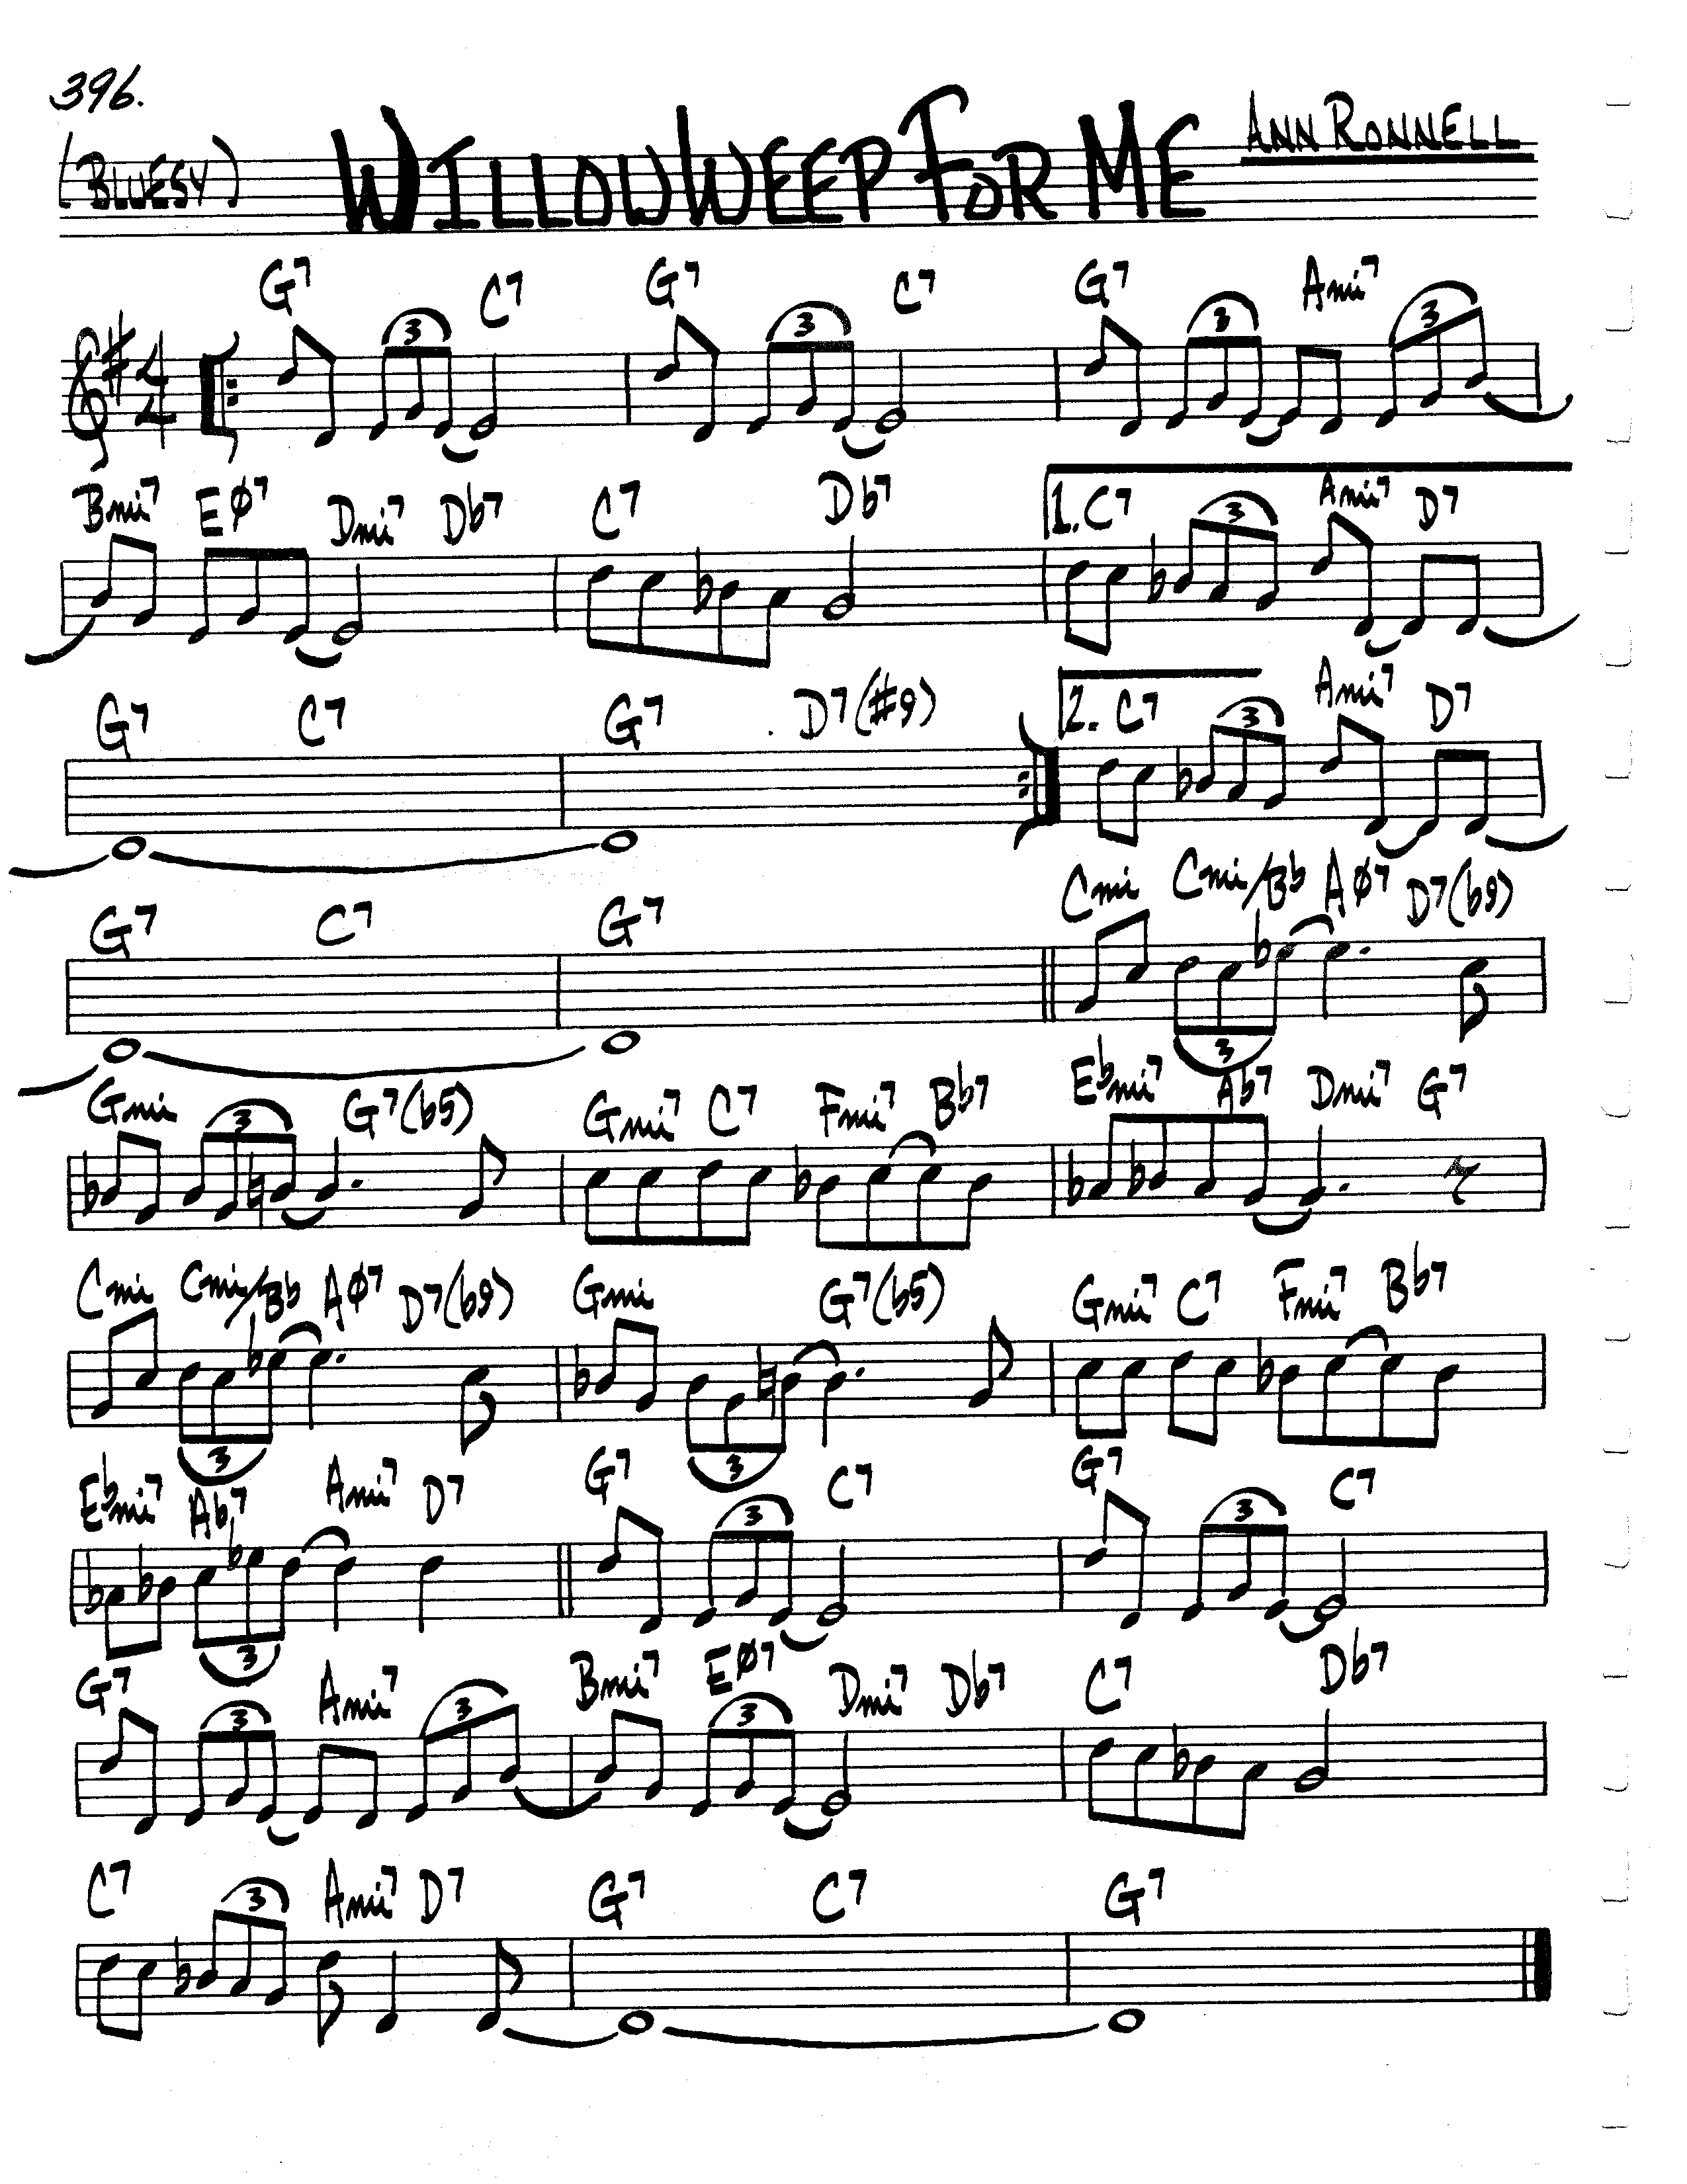 396.
(BLUESY) WILLOW WEEP FOR ME ANN RONNELL
G7 C7 G7 C7 G7 Ami7
3 3 3 3
4 4
Bmi7 EØ7 Dmi7 Db7 C7 Db7 1. C7 Ami7 D7
3
G7 C7 G7 D7(#9) 2. C7 Ami7 D7
3
G7 C7 G7 Cmi Cmi/Bb AØ7 D7(b9)
3
Gmi G7(b5) Gmi7 C7 Fmi7 Bb7 Ebmi7 Ab7 Dmi7 G7
3
Cmi Cmi/Bb AØ7 D7(b9) Gmi G7(b5) Gmi7 C7 Fmi7 Bb7
3 3
Ebmi7 Ab7 Ami7 D7 G7 C7 G7 C7
3 3 3
G7 Ami7 Bmi7 EØ7 Dmi7 Db7 C7 Db7
3 3 3
C7 Ami7 D7 G7 C7 G7
3